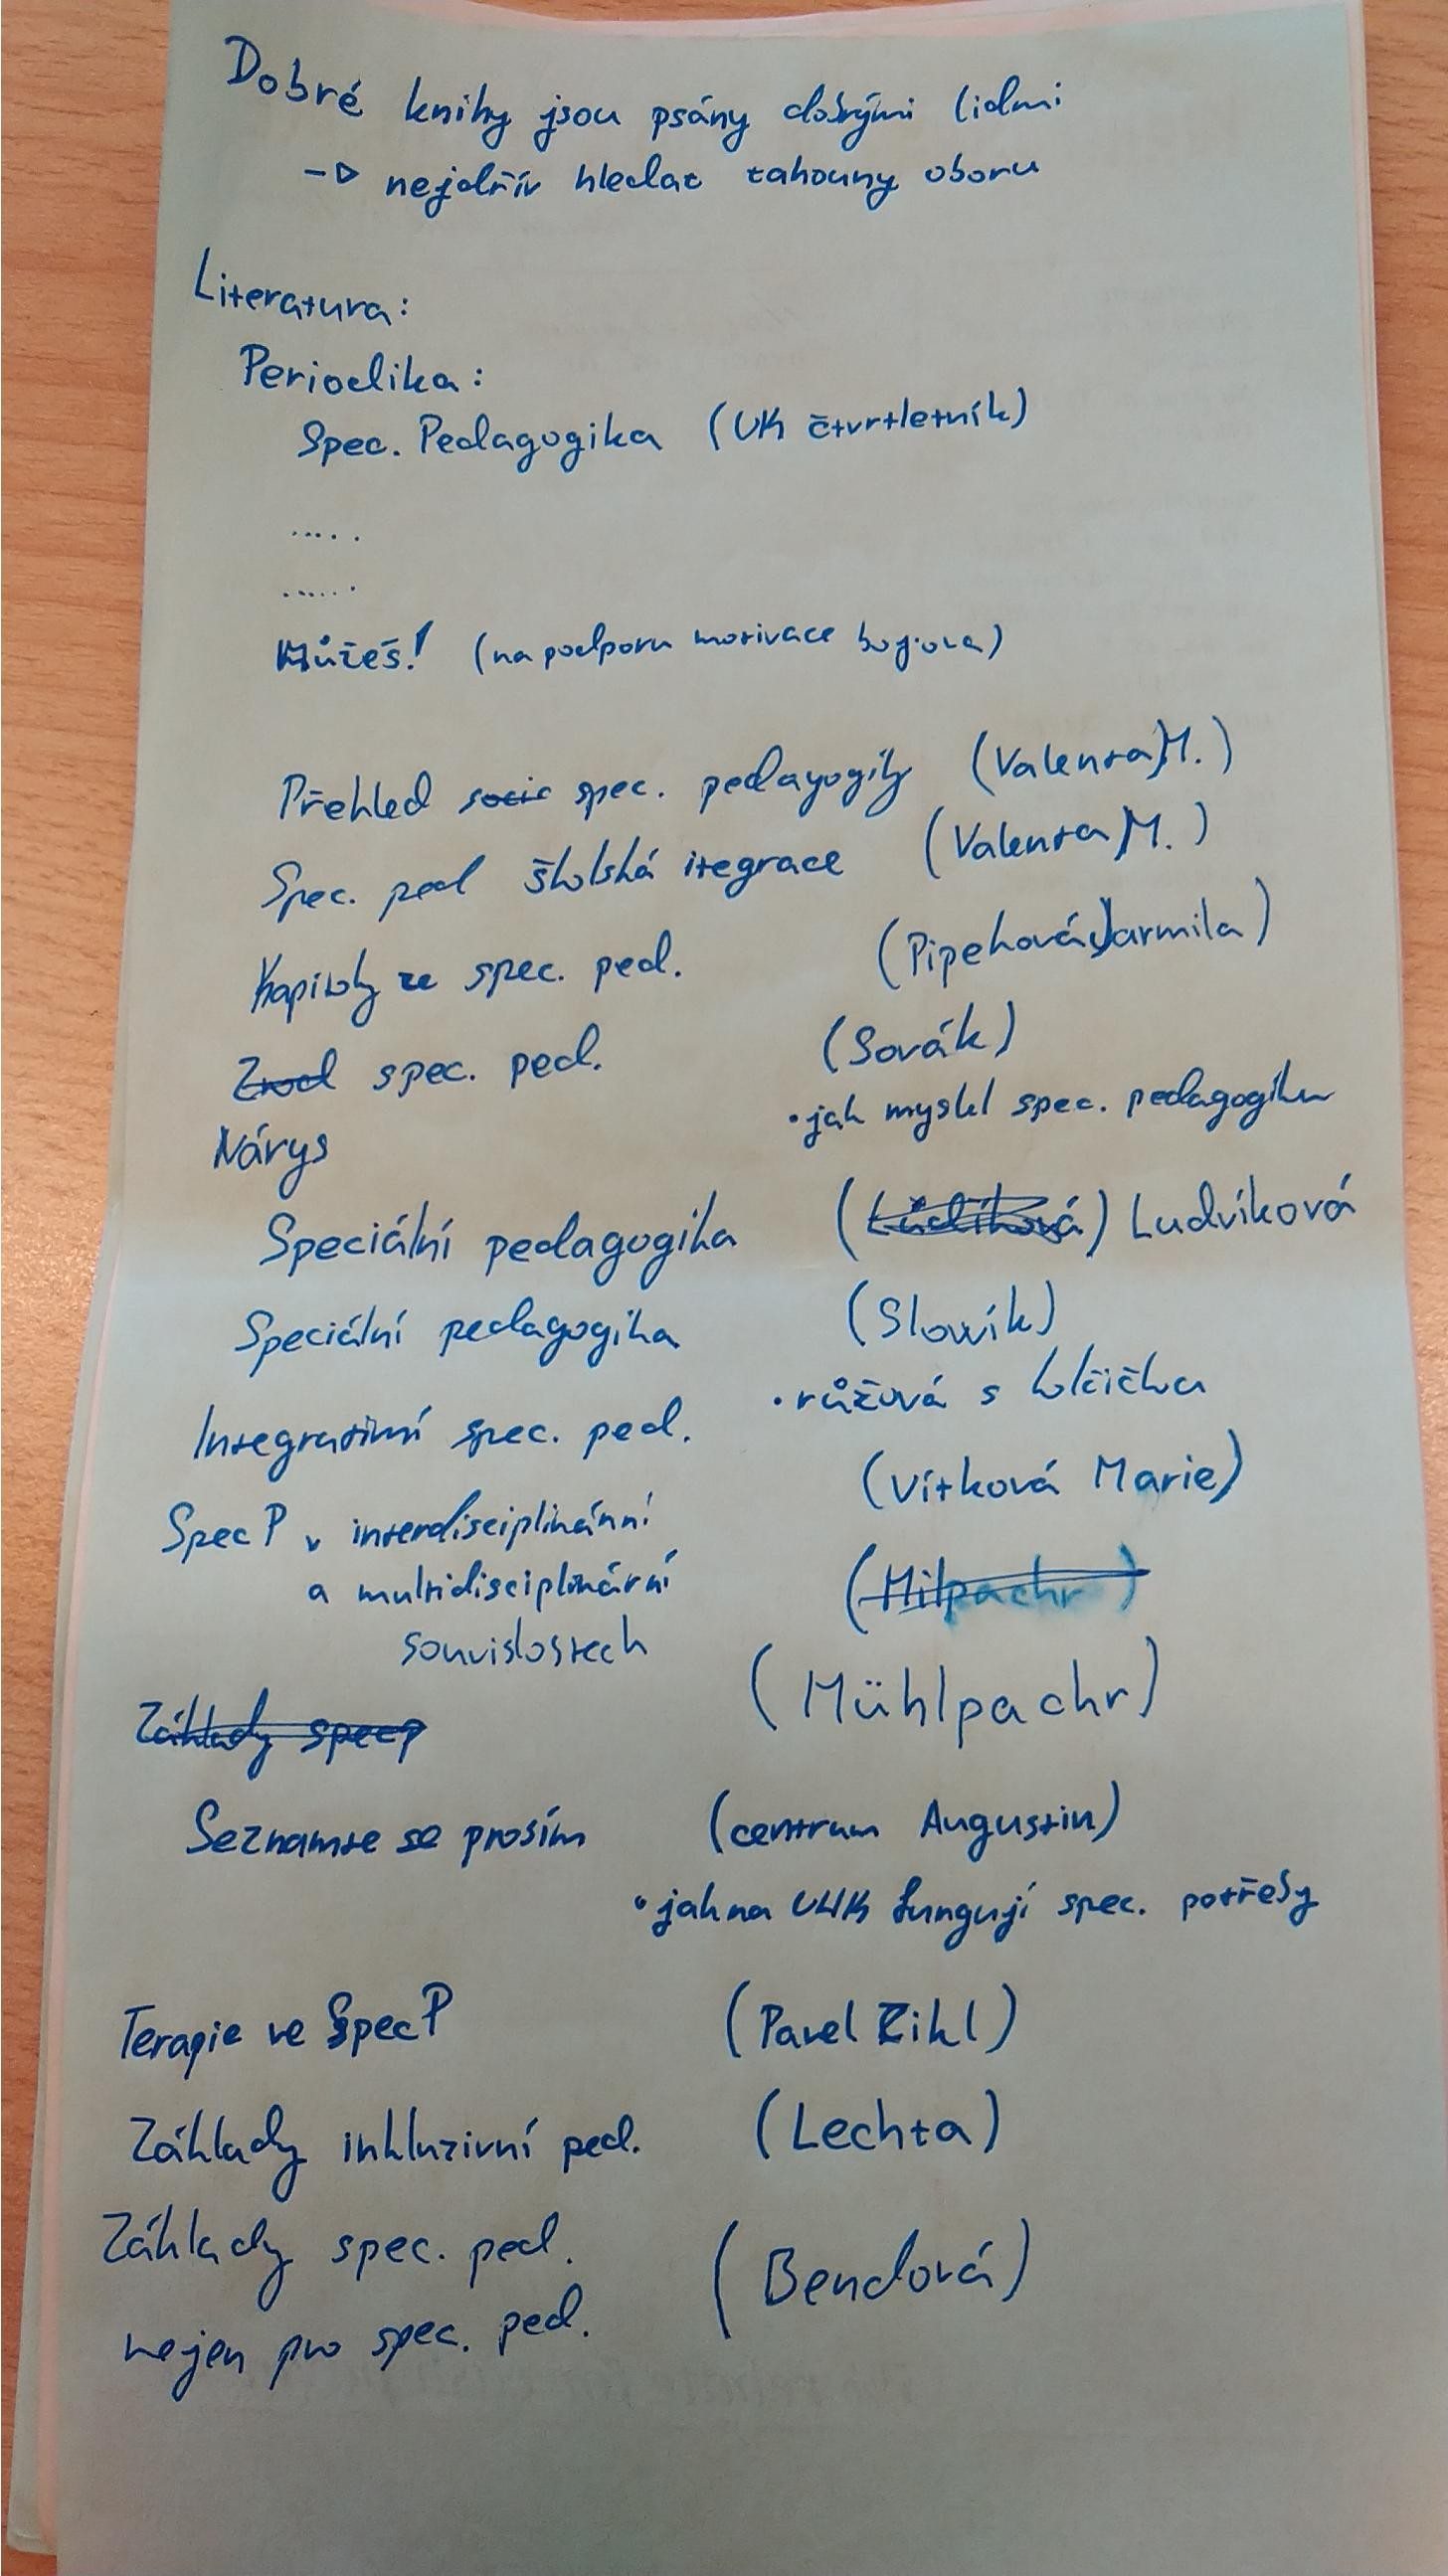 Dobré knihy jsou psány dobrými lidmi
→ nejdřív hledat tahouny oboru
Literatura:
Periodika:
Spec. Pedagogika (UK čtvrtletník)
.....
......
Můžeš! (na podporu motivace bojova)
Přehled spec. pedagogiky (Valenta M.)
Spec. ped školská itegrace (Valenta M.)
Kapitoly ze spec. ped. (Pipeková Jarmila)
spec. ped. (Sovák)
• jak myslel spec. pedagogiku
Nárys
Speciální pedagogika () Ludvíková
Speciální pedagogika (Slowík)
• růžová s holčičkou
Integrativní spec. ped. (Vítková Marie)
SpecP v interdisciplinánní
a multidisciplinární
souvislostech
(Milpachr)
(Mühlpachr)
Základy specp
Seznamte se prosím (centrum Augustin)
• jak na UHK fungují spec. potřeby
Terapie ve SpecP (Pavel Zikl)
Základy inkluzivní ped. (Lechta)
Základy spec. ped.
nejen pro spec. ped. (Bendová)